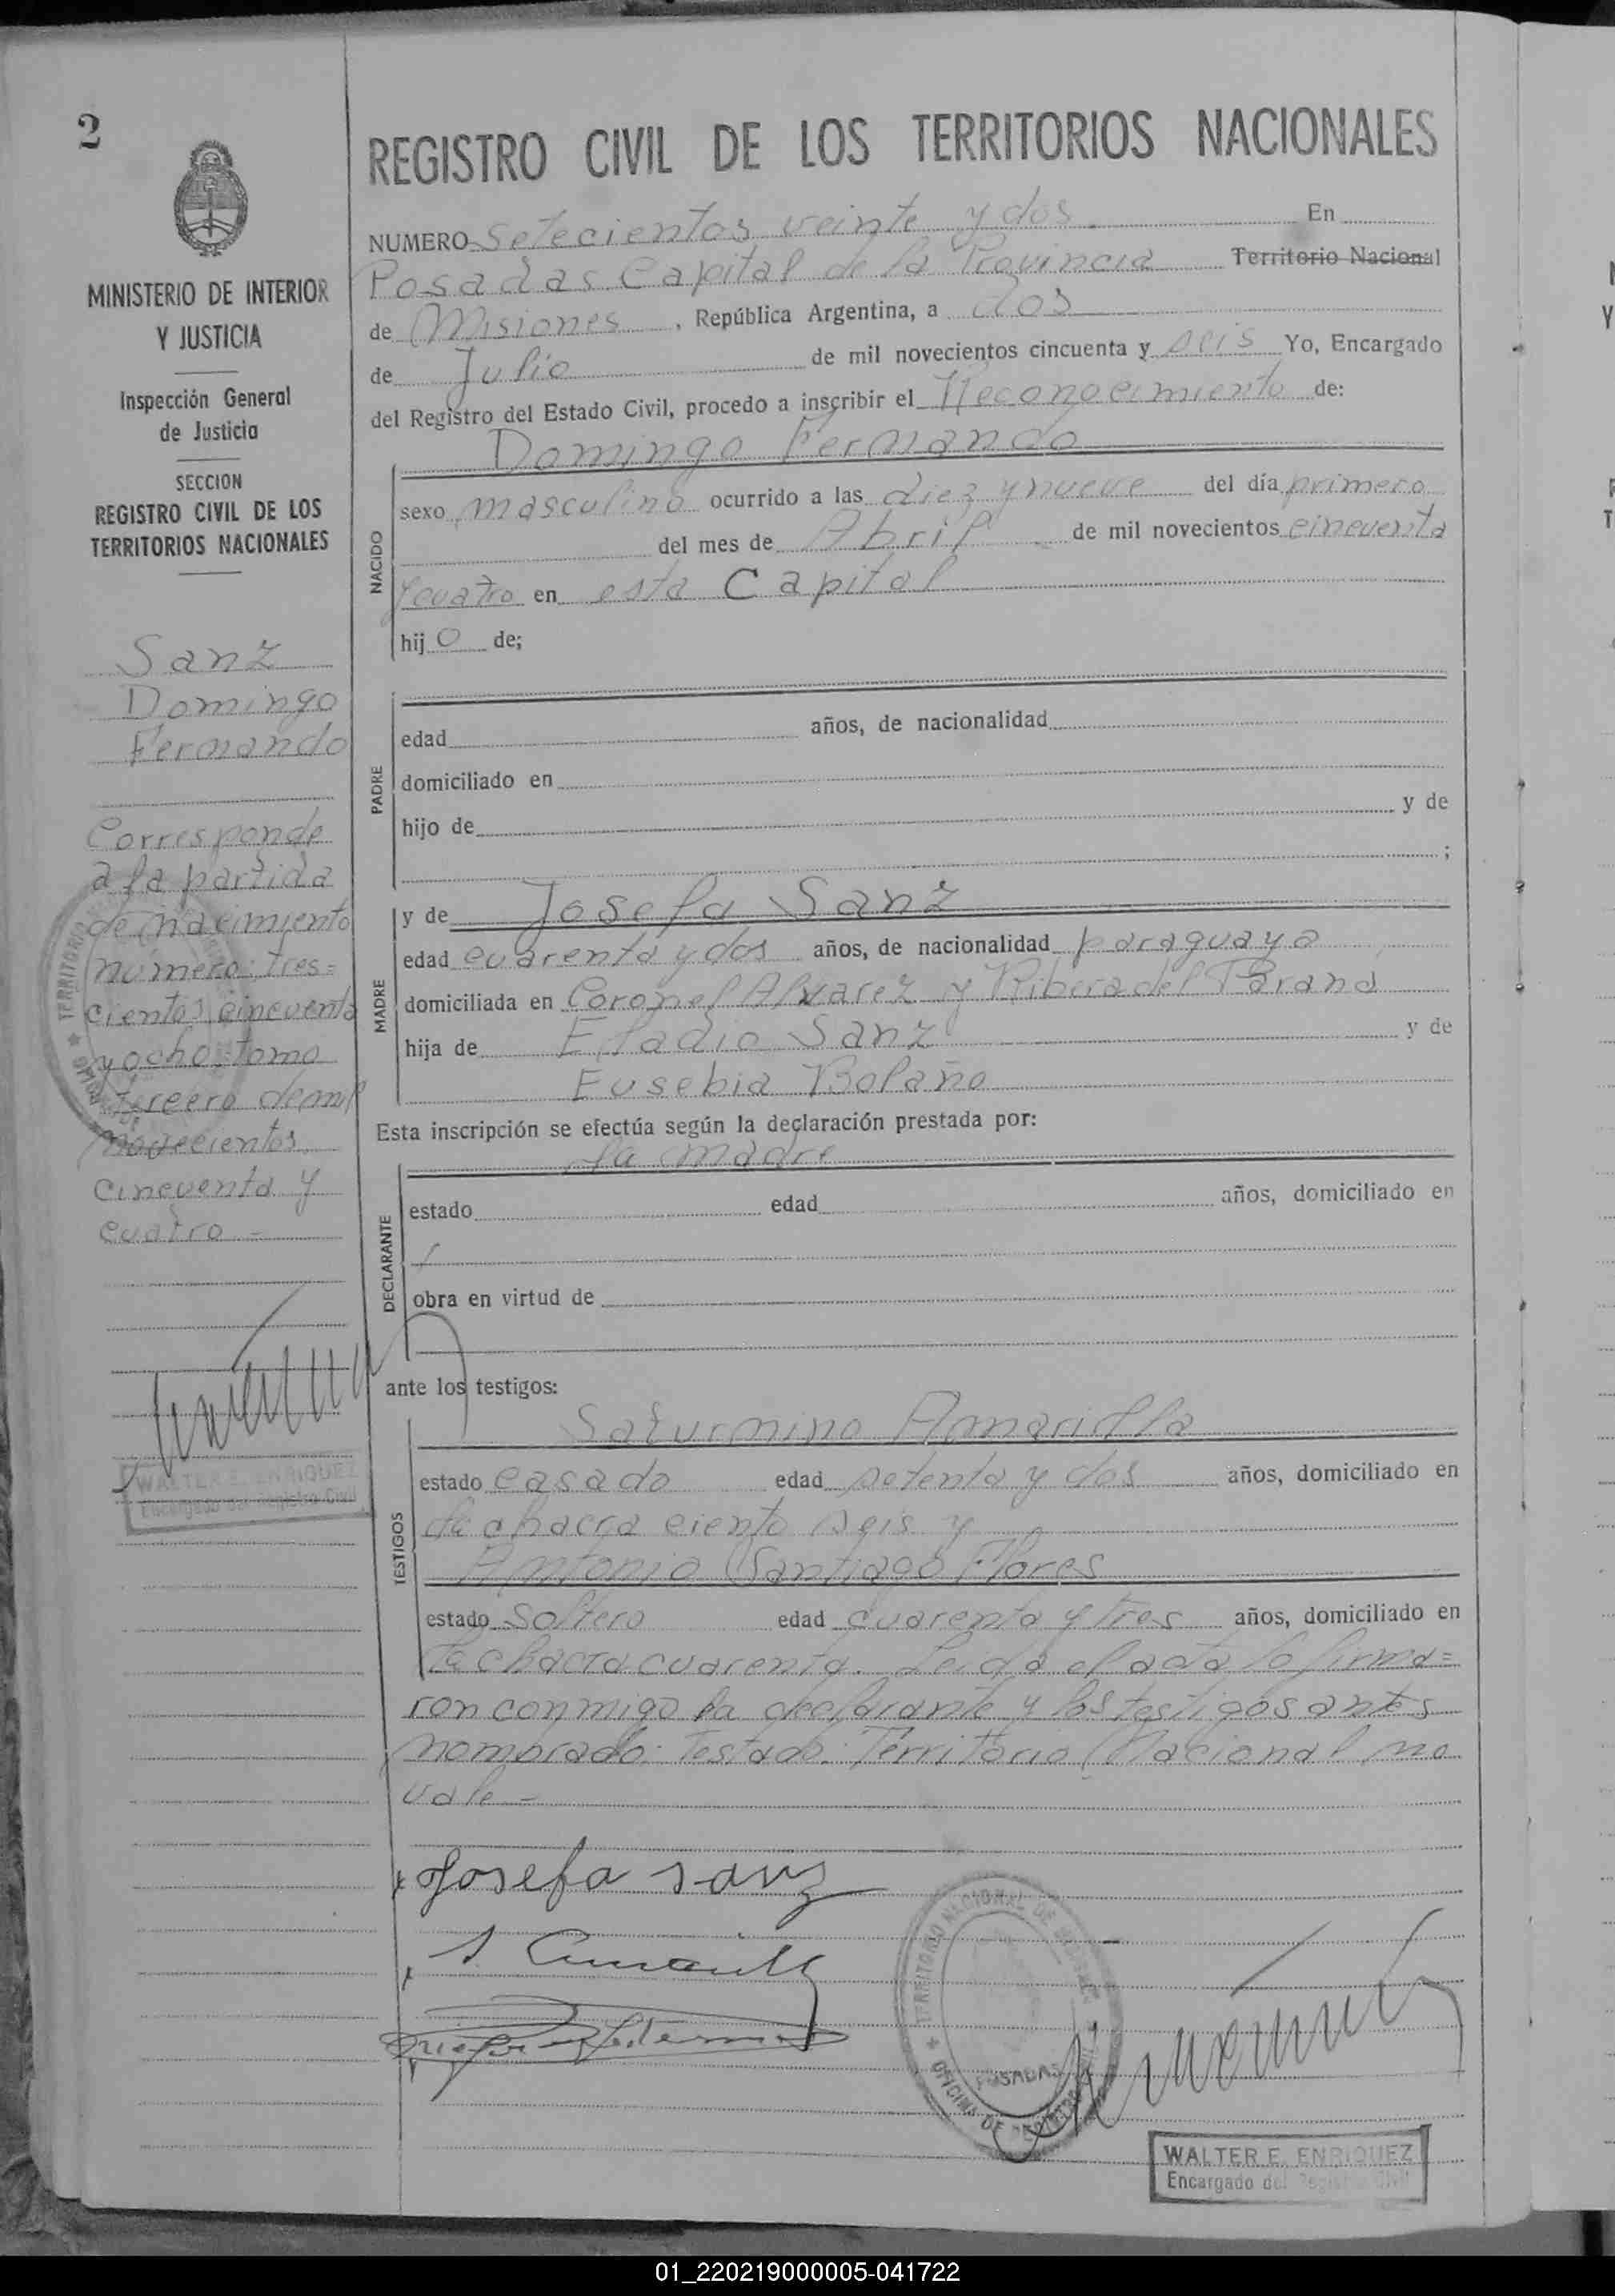 2
MINISTERIO DE INTERIOR
Y JUSTICIA
Inspección General
de Justicia
SECCION
REGISTRO CIVIL DE LOS
TERRITORIOS NACIONALES
Sanz
Domingo
Fernando
Corresponde
a la partida
de nacimiento
numero: tres=
cientos cincuenta
y ocho: tomo
tercero de mil
novecientos
cincuenta y
cuatro.-
WALTER E. ENRIQUEZ
Encargado del Registro Civil
REGISTRO CIVIL DE LOS TERRITORIOS NACIONALES
NUMERO Setecientos veinte y dos. En
Posadas Capital de la Provincia Territorio Nacional
de Misiones, República Argentina, a dos
de Julio de mil novecientos cincuenta y seis Yo, Encargado
del Registro del Estado Civil, procedo a inscribir el Reconocimiento de:
Domingo Fernando
NACIDO
sexo masculino ocurrido a las diez y nueve del día primero
del mes de Abril de mil novecientos cincuenta
y cuatro en esta Capital
hijo de;
PADRE
edad años, de nacionalidad
domiciliado en
hijo de y de
;
MADRE
y de Josefa Sanz
edad cuarenta y dos años, de nacionalidad paraguaya
domiciliada en Coronel Alvarez y Ribera del Parana
hija de Eladio Sanz y de
Eusebia Bolaño
Esta inscripción se efectúa según la declaración prestada por:
la madre
DECLARANTE
estado edad años, domiciliado en
obra en virtud de
ante los testigos:
TESTIGOS
Saturnino Amarilla
estado casado edad setenta y dos años, domiciliado en
la chacra ciento seis y
Antonio Santiago Flores
estado soltero edad cuarenta y tres años, domiciliado en
la chacra cuarenta. Leida el acta la firma=
ron conmigo la declarante y los testigos antes
nombrado: Testado: Territorio Nacional no
vale-
Josefa sanz
TERRITORIO NACIONAL DE MISIONES
POSADAS
OFICINA DE REGISTRO CIVIL
WALTER E. ENRIQUEZ
Encargado del Registro Civil
01_220219000005-041722